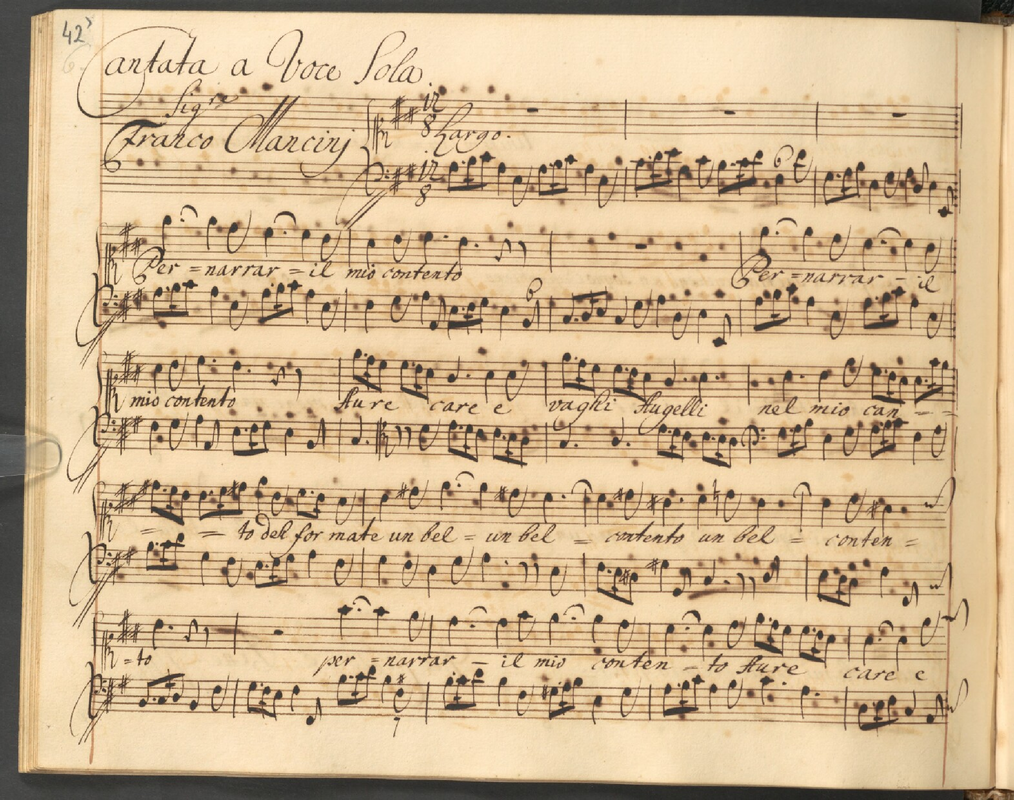 42
Cantata a Voce Sola
Sig.re
Franco Mancinj
12
8 Largo.
12
8
Per = narrar = il mio contento Per = narrar - il
mio contento Aure care e vaghi Augelli nel mio can - -
= - = to deh for mate un bel = un bel = contento un bel = conten =
= to per = narrar - il mio conten - to Aure care e
7